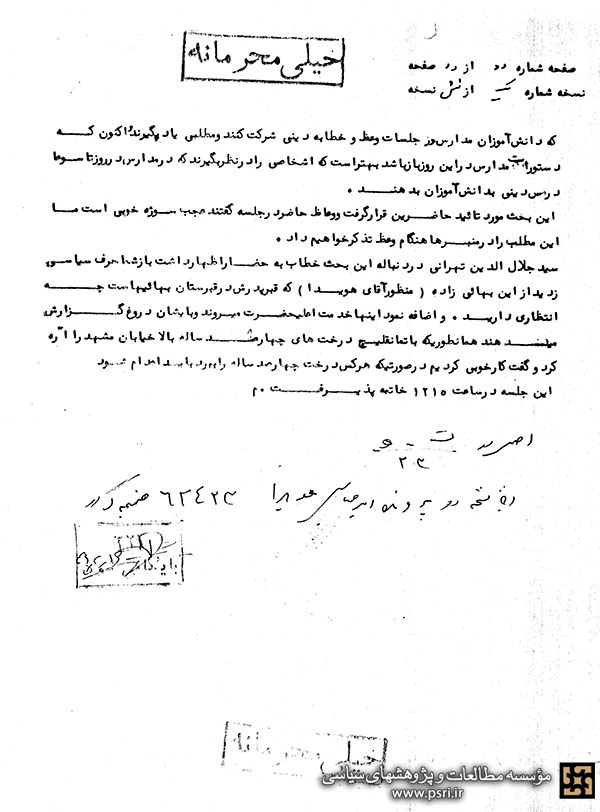 خیلی محرمانه
صفحه شماره دو از دو صفحه
نسخه شماره یک از شش نسخه
که دانش‌آموزان مدارس در جلسات وعظ و خطابه دینی شرکت کنند و مطلبی یاد بگیرند. اکنون که
دستورات مدارس در این روز باز باشد بهتر است که اشخاصی را در نظر بگیرند که در مدارس در روز تاسوعا
درس دینی به دانش‌آموزان بدهند .
این بحث مورد تائید حاضرین قرار گرفت و وعاظ حاضر در جلسه گفتند عجب سوژه خوبی است ما
این مطلب را در منبرها هنگام وعظ تذکر خواهیم داد .
سید جلال الدین تهرانی در دنباله این بحث خطاب به حضار اظهار داشت باز شما حرف سیاسی
زدید از این بهائی زاده ( منظور آقای هویدا ) که قبر پدرش در قبرستان بهائیهاست چه
انتظاری دارید . و اضافه نمود اینها خدمت اعلیحضرت میروند و بایشان دروغ گزارش
میدهند همانطوریکه با تمام درخت های چهارصد ساله بالا خیابان مشهد را اره
کرد و گفت کار خوبی کردیم در صورتیکه هر کس درخت چهارصد ساله را ببرد باید اعدام شود
این جلسه در ساعت ۱۲۱۵ خاتمه پذیرفت . م
۲۳
در پرونده امیر عباس هویدا ۶۲۴۲۳ ضمیمه گردد
بایگانی
خیلی محرمانه
مؤسسه مطالعات و پژوهشهای سیاسی
www.psri.ir